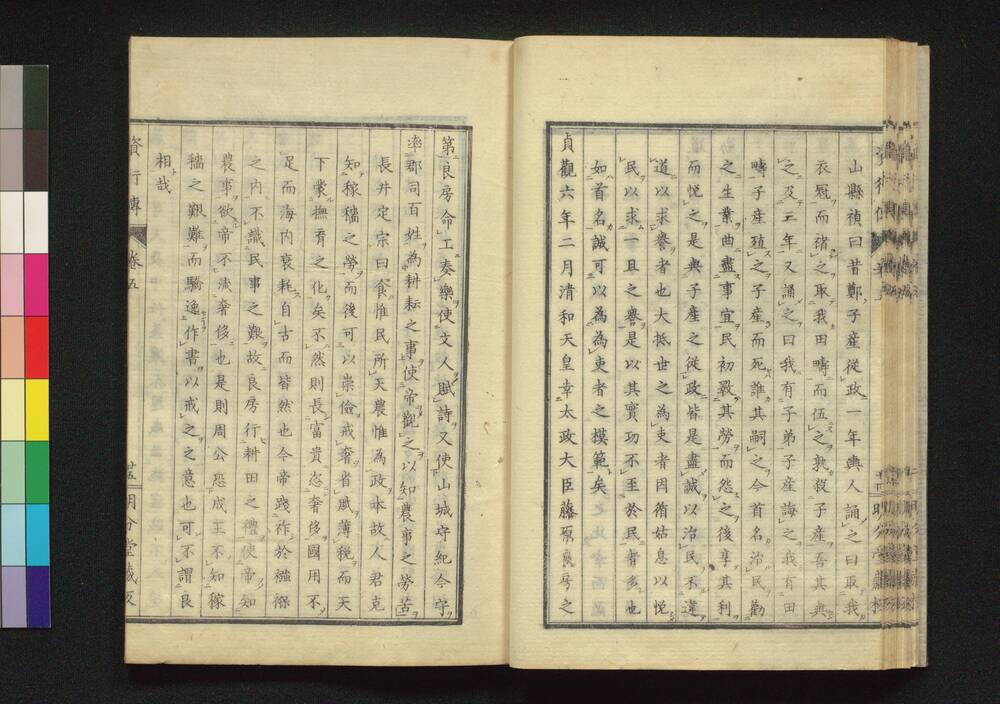 山縣禎曰昔鄭子產從政一年輿人誦之曰取我
衣冠而褚之取我田疇而伍之孰殺子產吾其與
之及三年又誦之曰我有子弟子產誨之我有田
疇子產殖之子產而死誰其嗣之今首名治民勸
之生業曲盡事宜民初歎其勞而怨之後享其利
而悅之是與子產之從政皆是盡誠以治民不違
道以求譽者也大抵世之為吏者因循姑息以悅
民以求一旦之譽是以其實功不至於民者多也
如首名誠可以為為吏者之模範矣
貞觀六年二月清和天皇幸太政大臣藤原良房之
第良房命工奏樂使文人賦詩又使山城守紀今守
率郡司百姓為耕耘之事使帝觀之以知農事之勞苦
長井定宗曰食惟民所天農惟為政本故人君克
知稼穡之勞而後可以崇儉戒奢省賦薄稅而天
下蒙撫育之化矣不然則長富貴恣奢侈國用不
足而海內衰耗自古而皆然也今帝踐祚於襁褓
之內不識民事之艱故良房行耕田之禮使帝知
農事欲帝不淫奢侈也是則周公恐成王不知稼
穡之艱難而驕逸作書以戒之之意也可不謂良
相哉
資行傳 卷五 廿五 明分堂藏版